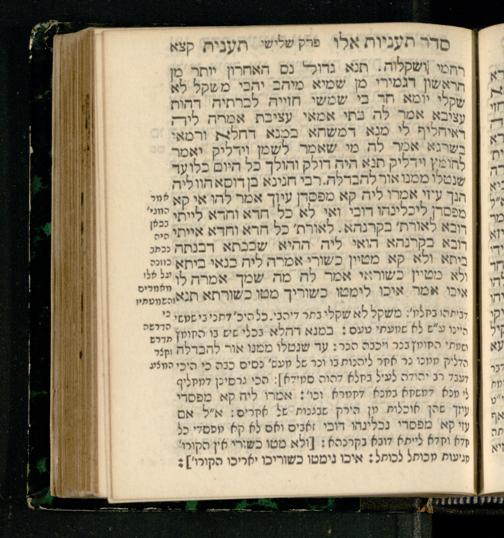 סדר תעניות אלו פרק שלישי תענית קצא
רחמי ושקלוה. תנא גדול נס האחרון יותר מן
הראשון דגמירי מן שמיא מיהב יהבי משקל לא
שקלי יומא חד בי שמשי חזייה לברתיה דהות
עציבא אמר לה בתי אמאי עציבת אמרה ליה
דאיחליף לי מנא דמשחא במנא דחלא ורמאי
בשרגא אמר לה מי שאמר לשמן וידליק יאמר
לחומץ וידליק תנא היה דולק והולך כל היום כולו עד
שנטלו ממנו אור להבדלה. רבי חנינא בן דוסא הוו ליה
הנך עיזי אמרו ליה קא מפסדן עיזך אמר להו אי קא
מפסדן ליכלינהו דובי ואי לא כל חדא וחדא לייתי
דובא לאורת׳ בקרנהא. לאורת׳ כל חדא וחדא אייתי
דובא בקרנהא הואי ליה ההיא שבבתא דבנתה
ביתא ולא קא מטיין כשורי אמרה ליה בנאי ביתא
ולא מטיין כשוראי אמר לה מה שמך אמרה לו
איכו אמר איכו לימטו כשוריך מטו כשורתא תנא
אמר
המגי׳
כאן
היה
נכתב
מאמרים
והשמטתיו
כי
הדרשה
תדרש
משקל לא שקלי
היינו ע״ש לא
במנא דחלא בכלי שיש בו החומץ
עד שנטלו ממנו אור להבדלה
הדליק ממנו נר אחר ליהנות בו
דעבד רב יהודה לעיל בחלא דהוה סמידא]: הכי גרסינן דמחליף
לי מנא דמשחא במנא דחמרא וכו׳: אמרו ליה קא מפסדי
עיזך שהן אוכלות מן הירק שבגנות של אחרים: א״ל אם
עזי קא מפסדי נכלינהו דובי זאבים ואם לא קא מפסדי כל
חדא וחדא לייתא דובא בקרנהא: [ולא מטו כשורי אין הקורו׳
מגיעות מכותל לכותל: איכו נימטו כשוריכי יאריכו הקורו׳]: